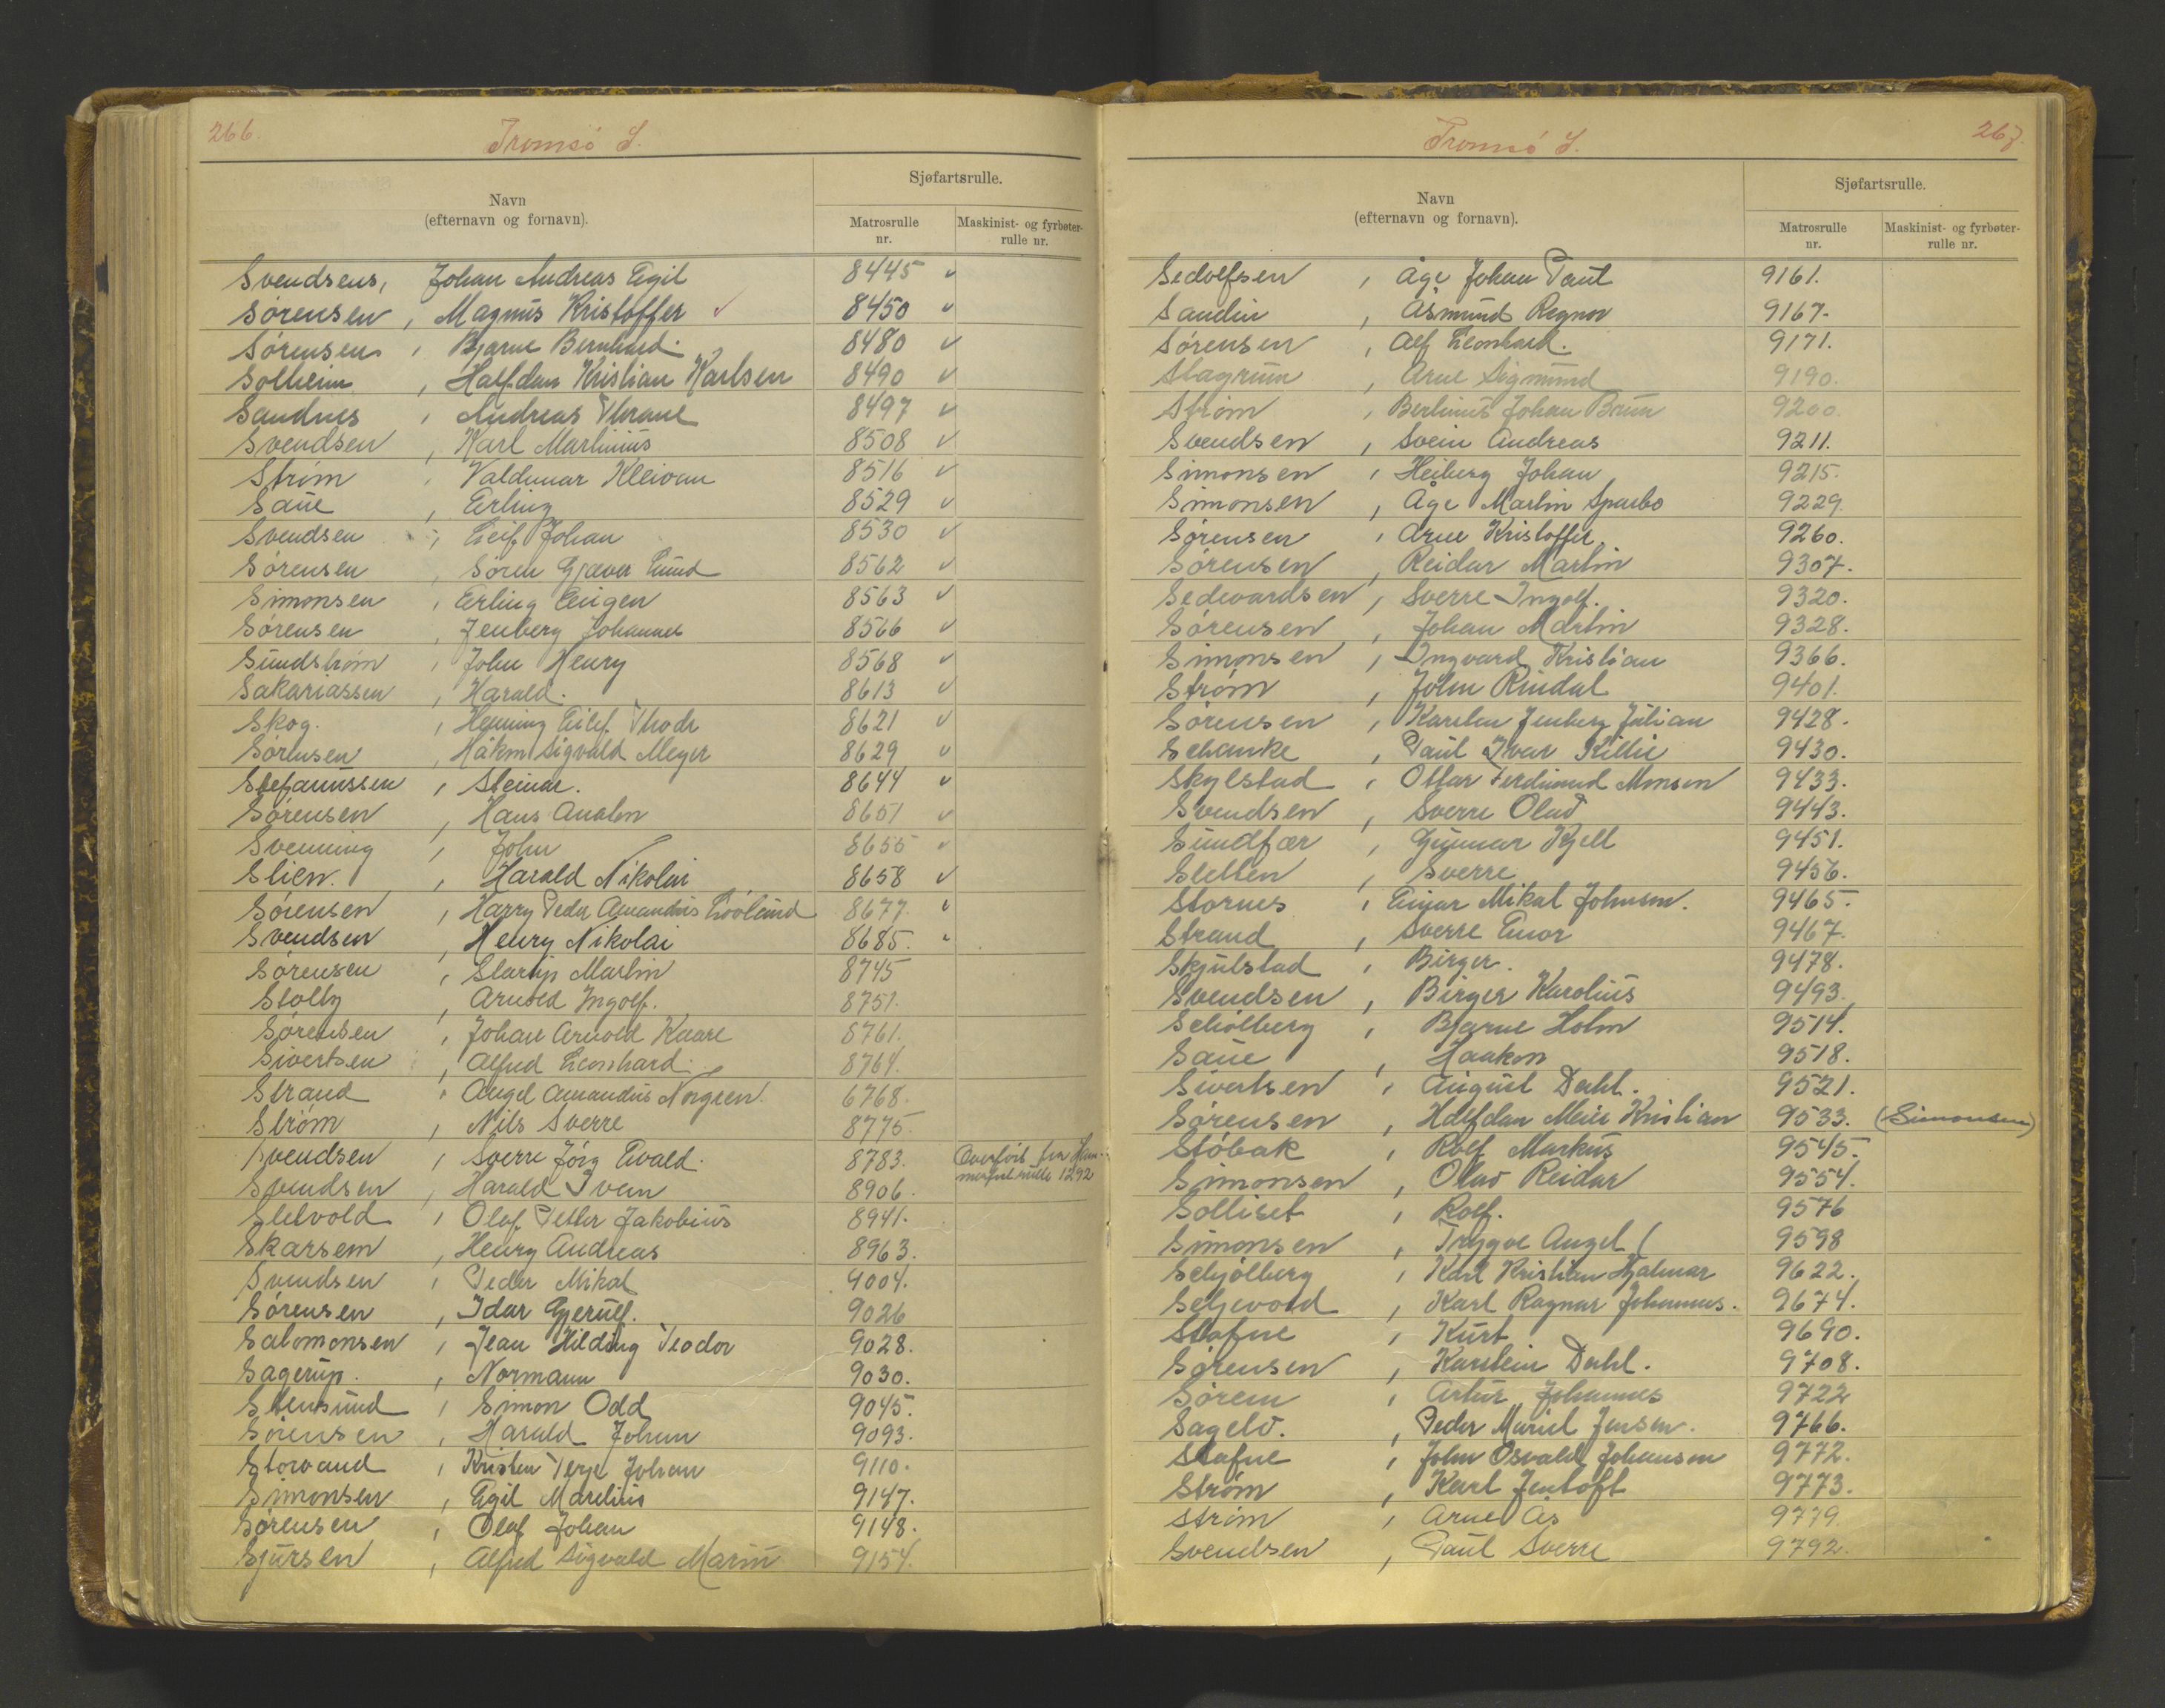 266.
Tromsö S.
Navn
(efternavn og fornavn).
Sjøfartsrulle.
Matrosrulle
nr.
Maskinist- og fyrbøter-
rulle nr.
Svendsens, Johan Andreas Egil 8445 v
Sørensen, Magnus Kristoffer ✓ 8450 v
Sørensen, Bjarne Bernhard. 8480 v
Solheim, Halfdan Kristian Karlsen 8490 v
Sandnes, Andreas Thrane 8497 v
Svendsen, Karl Martinius 8508 v
Strøm, Valdemar Kleivan 8516 v
Saue, Erling 8529 v
Svendsen, Leif Johan 8530 v
Sørensen, Søren Gjæver Lund 8562 v
Simonsen, Erling Eugen 8563 v
Sørensen, Jenberg Johannes 8566 v
Sundstrøm, John Henry 8568 v
Sakariassen, Harald. 8613 v
Skog., Henning Eilif Thode 8621 v
Sørensen, Håkon Sigvald Meyer 8629 v
Stefanussen, Steinar. 8644 v
Sørensen, Hans Analon 8651 v
Svenning, John 8655 v
Slien., Harald Nikolai 8658 v
Sørensen, Harry Peder Amandus Løvlund 8677. v
Svendsen, Henry Nikolai 8685. v
Sørensen, Slarup Martin 8745
Stolly, Arnold Ingolf. 8751.
Sørensen, Johan Arnold Kaare 8761.
Sivertsen, Alfred Leonhard. 8764.
Strand, Angel Amandus Norgren. 6768.
Strøm, Nils Sverre 8775.
Svendsen, Sverre Jörg Evald. 8783. Overført fra Ham-
merfest rulle 1292
Svendsen, Harald Iven 8906.
Sletvold, Olaf Petter Jakobius 8941.
Skarsem, Henry Andreas 8963.
Svendsen, Peder Mikal 9004.
Sørensen, Idar Gjerulf. 9026
Salomonsen, Jean Hilding Teodor 9028.
Sagerup., Normann 9030.
Stensund, Simon Odd 9045.
Sørensen, Harald Johan 9093.
Storvand, Kristen Terje Johan 9110.
Simonsen, Egil Marelius 9147.
Sørensen, Olaf Johan 9148.
Sjursen, Alfred Sigvald Marin 9154.
267.
Tromsö S.
Navn
(efternavn og fornavn).
Sjøfartsrulle.
Matrosrulle
nr.
Maskinist- og fyrbøter-
rulle nr.
Sedolfsen, Åge Johan Paul 9161.
Sandin, Åsmund Regnor 9167.
Sørensen, Alf Leonhard. 9171.
Slagrum, Arne Sigmund 9190.
Strøm, Berlinus Johan Brun 9200.
Svendsen, Svein Andreas 9211.
Simonsen, Heiberg Johan 9215.
Simonsen, Åge Martin Sparbo 9229.
Sørensen, Arne Kristoffer. 9260.
Sørensen, Reidar Martin 9307.
Sedevardsen, Sverre Ingolf. 9320.
Sørensen, Johan Martin 9328.
Simonsen, Ingvard Kristian 9366.
Strøm, John Rindal 9401.
Sørensen, Karsten Jenberg Julian 9428.
Schanke, Paul Ivar Killie 9430.
Skylstad, Ottar Ferdinand Monsen 9433.
Svendsen, Sverre Olav 9443.
Sundfær, Gunnar Kjell 9451.
Sletten, Sverre 9456.
Stornes, Einar Mikal Johnsen. 9465.
Strand, Sverre Einor 9467.
Skjulstad, Birger. 9478.
Svendsen, Birger Karolius 9493.
Schølberg, Bjarne Holm 9514.
Saue, Haakon 9518.
Sivertsen, August Dahl. 9521.
Sørensen, Halfdan Meier Kristian 9533. (Simonsen)
Støbak, Rolf Markus 9545.
Simonsen, Olav Reidar 9554.
Solliset, Rolf. 9576
Simonsen, Trygve Angel ( 9598
Schjølberg, Karl Kristian Hjalmar 9622.
Seljevold, Karl Ragnar Johannes. 9674.
Stafne, Kurt 9690.
Sørensen, Karstein Dahl. 9708.
Sørem, Artur Johannes 9722
Sagelv., Peder Mariel Jensen. 9766.
Stafne, John Osvald Johansen 9772.
Strøm, Karl Jentoft 9773.
Strøm, Arne Ås 9779
Svendsen, Paul Sverre 9792.